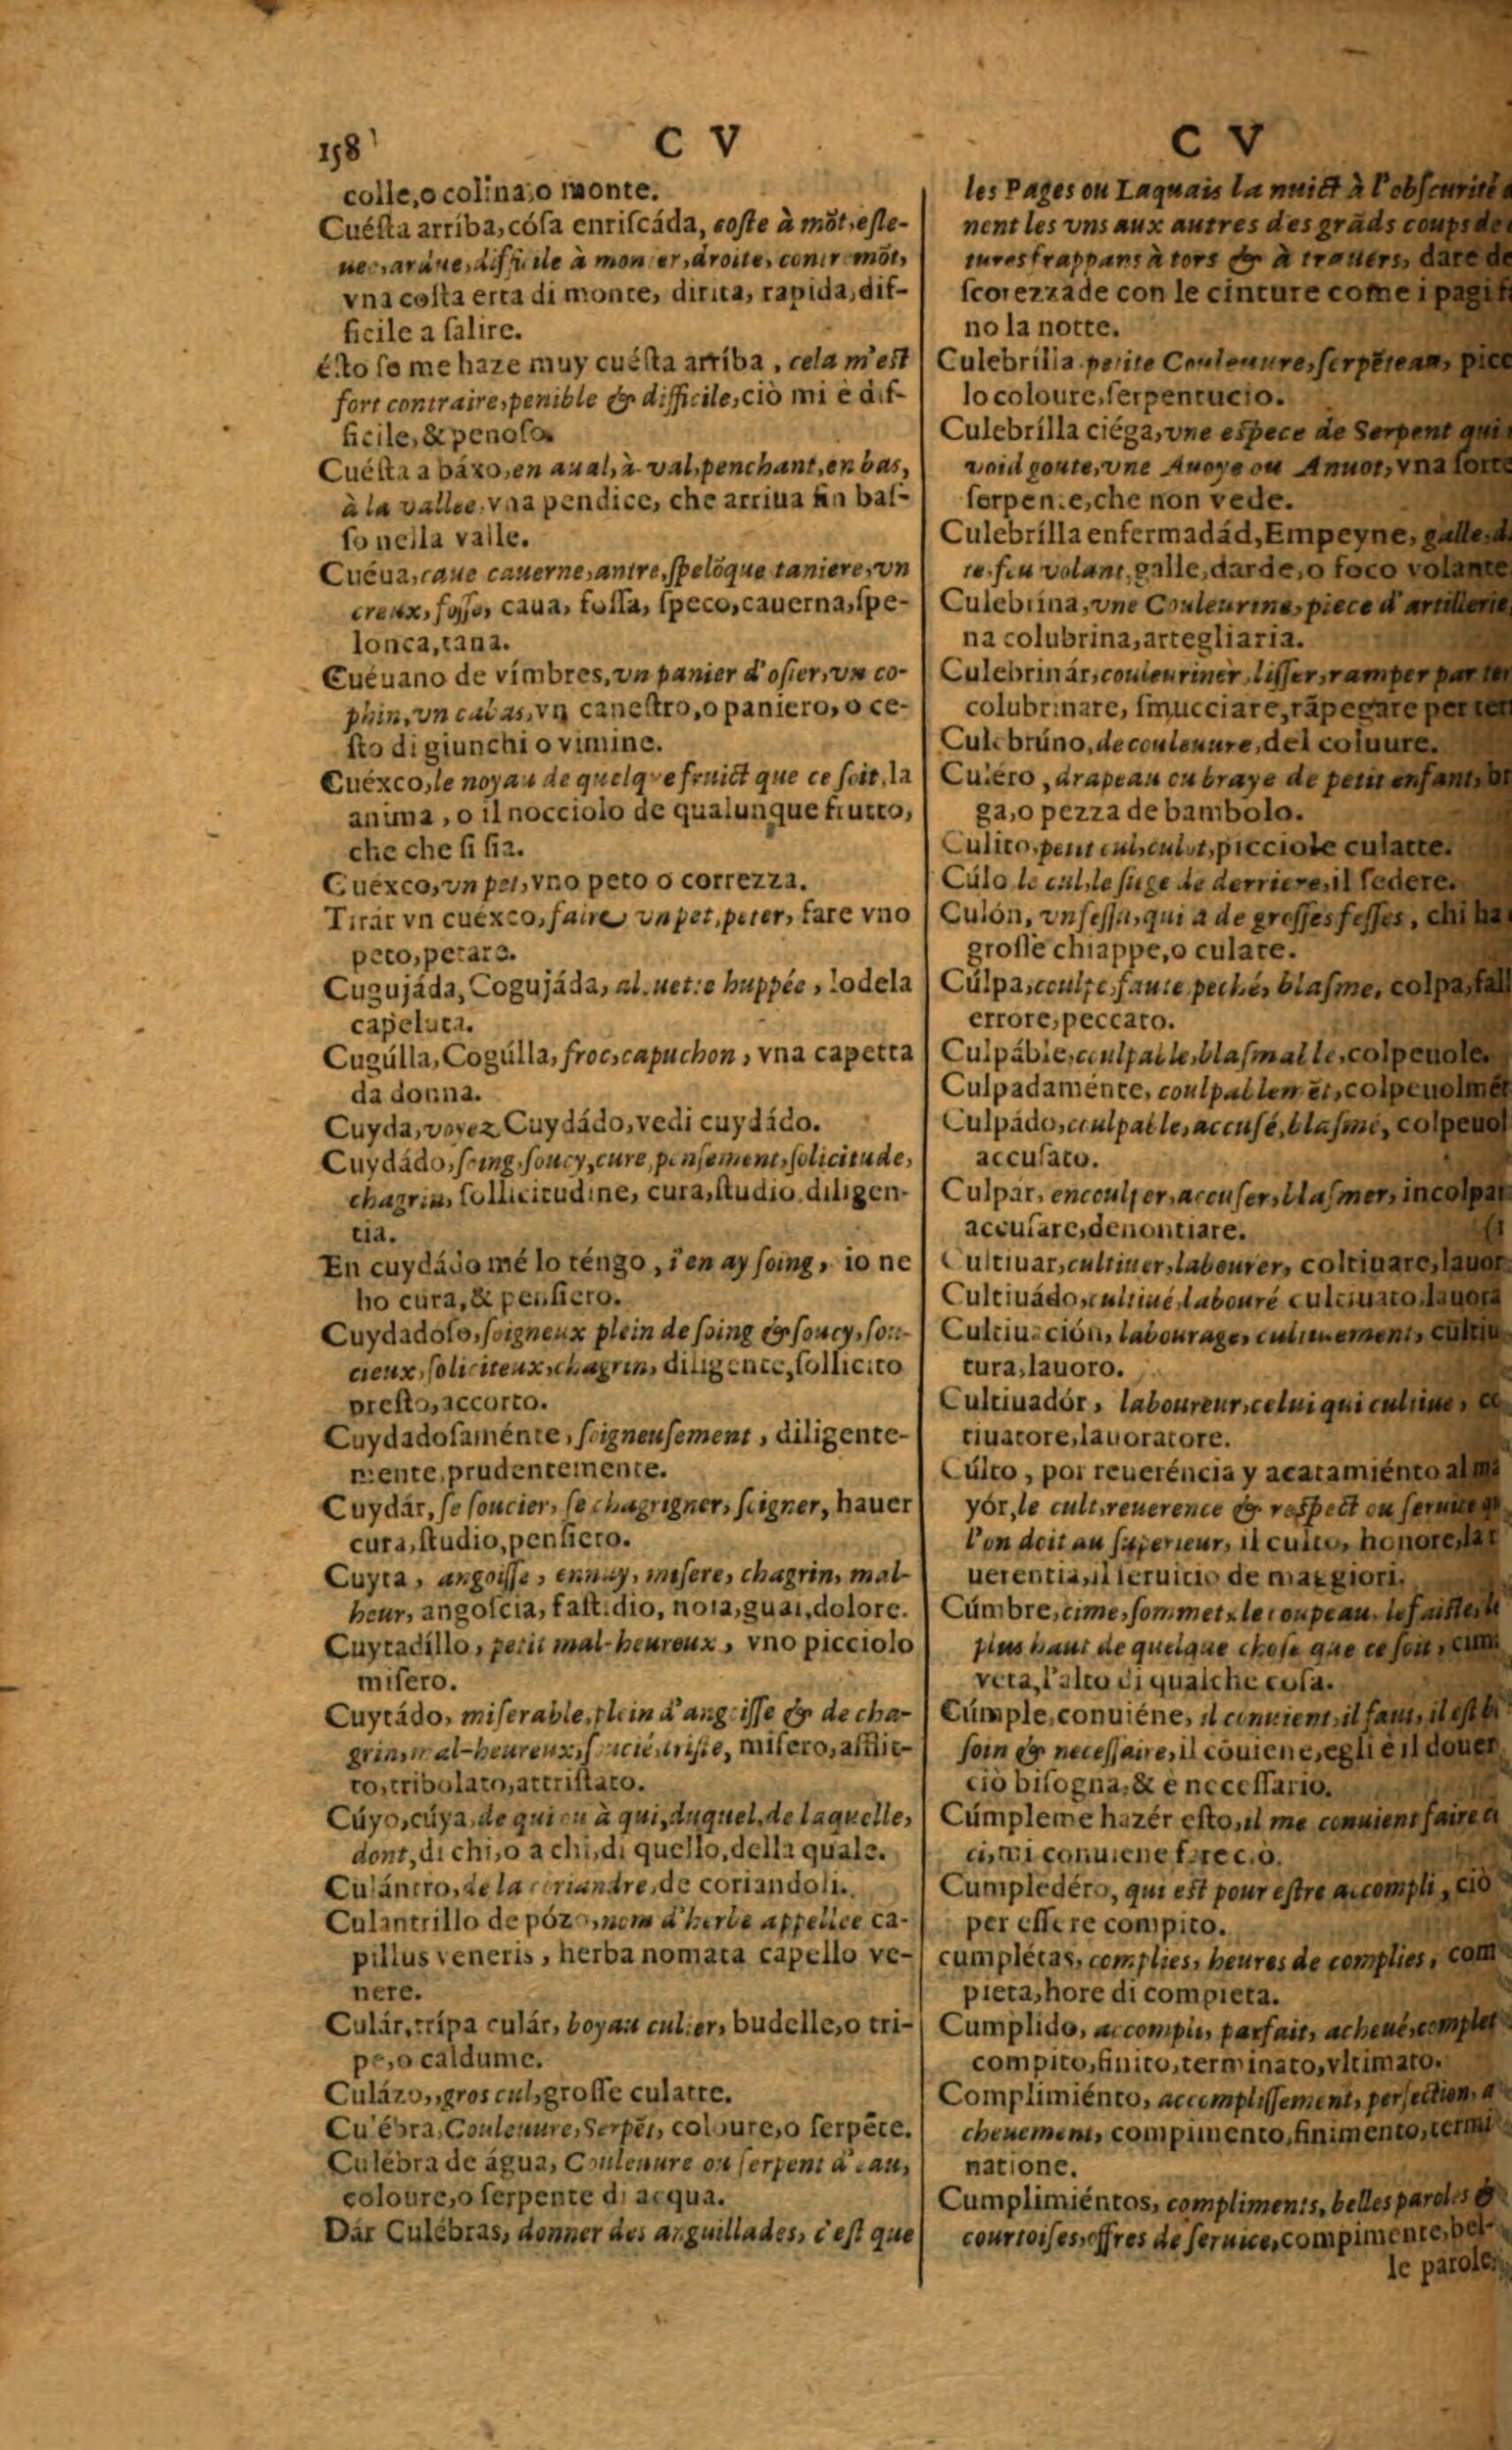 158 C V
colle,o colina,o monte.
Cuéſta arríba,cóſa enriſcáda, coſte à mõt,eſle-
uee,ardue,difficile à monter,droite, contremõt,
vna coſta erta di monte, dirita, rapida,dif-
ficile a ſalire.
éſto ſe me haze muy cuéſta arríba , cela m'eſt
fort contraire,penible & difficile,ciò mi è dif-
ficile,& penoſo.
Cuéſta a báxo,en aual,à val,penchant,en bas,
à la vallee,vna pendice, che arriua fin baſ-
ſo nella valle.
Cuéua,caue cauerne,antre,ſpelõque taniere,vn
creux,foſſe, caua, foſſa, ſpeco,cauerna,ſpe-
lonca,tana.
Cuéuano de vímbres,vn panier d'oſier,vn co-
phin,vn cabas,vn caneſtro,o paniero,o ce-
ſto di giunchi o vimine.
Cuéxco,le noyau de quelque fruict que ce ſoit,la
anima , o il nocciolo de qualunque frutto,
che che ſi ſia.
Cuéxco,vn pet,vno peto o correzza.
Tirár vn cuéxco,faire vn pet,peter, fare vno
peto,petare.
Cugujáda,Cogujáda, alouette huppée , lodela
capeluta.
Cugúlla,Cogúlla,froc,capuchon , vna capetta
da donna.
Cuyda,voyez Cuydádo,vedi cuydádo.
Cuydádo,ſoing,ſoucy,cure,penſement,ſolicitude,
chagrin, ſollicitudine, cura,ſtudio,diligen-
tia.
En cuydádo mé lo téngo , i'en ay ſoing, io ne
ho cura,& penſiero.
Cuydadoſo,ſoigneux plein de ſoing & ſoucy,ſou-
cieux,ſoliciteux,chagrin, diligente,ſollicito
preſto,accorto.
Cuydadoſaménte,ſoigneuſement , diligente-
mente,prudentemente.
Cuydár,ſe ſoucier, ſe chagrigner, ſoigner, hauer
cura,ſtudio,penſiero.
Cuyta , angoiſſe , ennuy, miſere, chagrin, mal-
heur, angoſcia, faſtidio, noia,guai,dolore.
Cuytadíllo , petit mal-heureux , vno picciolo
miſero.
Cuytádo, miſerable,plein d'angoiſſe & de cha-
grin,mal-heureux,ſoucié,triſte, miſero,afflit-
to,tribolato,attriſtato.
Cúyo,cúya,de qui ou à qui,duquel,de laquelle,
dont,di chi,o a chi,di quello,della quale.
Culántro,de la coriandre,de coriandoli.
Culantrillo de pózo,nom d'herbe appellee ca-
pillus veneris , herba nomata capello ve-
nere.
Culár,trípa culár, boyau culier, budelle,o tri-
pe,o caldume.
Culázo,,gros cul,groſſe culatte.
Culébra,Couleuure,Serpẽt, coloure,o ſerpẽte.
Culébra de água, Couleuure ou ſerpent d'eau,
coloure,o ſerpente di acqua.
Dár Culébras, donner des anguillades, c'eſt que
C V
les Pages ou Laquais la nuict à l'obſcurité
nent les vns aux autres des grãds coups de
tures frappans à tors & à trauers, dare de
ſcorezzade con le cinture come i pagi
no la notte.
Culebrílla petite Couleuure,ſerpẽteau, picc
lo coloure,ſerpentucio.
Culebrílla ciéga,vne eſpece de Serpent qui
void goute,vne Auoye ou Anuot,vna ſorte
ſerpente,che non vede.
Culebrílla enfermadád,Empeyne, galle,d
te,feu volant,galle,darde,o foco volante
Culebrina,vne Couleurine,piece d'artillerie,
na colubrina,artegliaria.
Culebrinár,couleuriner,liſſer,ramper par ter
colubrinare, ſmucciare,rãpegare per terr
Culebrúno,de couleuure,del coluure.
Culéro ,drapeau ou braye de petit enfant, br
ga,o pezza de bambolo.
Culito,petit cul,culot,picciole culatte.
Cúlo le cul,le ſiege de derriere,il ſedere.
Culón, vn feſſu,qui a de groſſes feſſes , chi ha
groſſe chiappe,o culate.
Cúlpa,coulpe,faute peché, blaſme, colpa,fall
errore,peccato.
Culpáble,coulpable,blaſmable,colpeuole.
Culpadaménte, coulpablemẽt,colpeuolmẽt
Culpádo,coulpable,accuſé,blaſmé, colpeuol
accuſato.
Culpar, encoulper,accuſer,blaſmer, incolpar
accuſare,denontiare.
Cultiuar,cultiuer,labourer, coltiuare,lauor
Cultiuádo,cultiué,labouré cultiuato,lauora
Cultiuación, labourage, cultiuement, cultiu
tura,lauoro.
Cultiuadór , laboureur,celui qui cultiue , co
tiuatore,lauoratore.
Cúlto , por reueréncia y acatamiénto al ma
yór,le cult,reuerence & reſpect ou ſeruice q
l'on doit au ſuperieur, il culto, honore,la r
uerentia,il ſeruitio de maggiori.
Cúmbre,cime,ſommet,le coupeau, le faiſte,le
plus haut de quelque choſe que ce ſoit , cim
veta,l'alto di qualche coſa.
Cúmple,conuiéne, il conuient,il faut, il eſt b
ſoin & neceſſaire,il cõuiene,egli è il douer
ciò biſogna,& è neceſſario.
Cúmpleme hazér eſto,il me conuient faire c
ci,mi conuiene fare ciò.
Cumpledéro, qui eſt pour eſtre accompli , ciò
per eſſere compito.
cumplétas, complies, heures de complies , com
pieta,hore di compieta.
Cumplido, accompli, parfait, acheué,complet
compito,finito,terminato,vltimato.
Complimiénto, accompliſſement, perfection, a
cheuement, compimento,finimento,termi
natione.
Cumplimiéntos, compliments, belles paroles &
courtoiſes,offres de ſeruice,compimente,bel-
le parole,